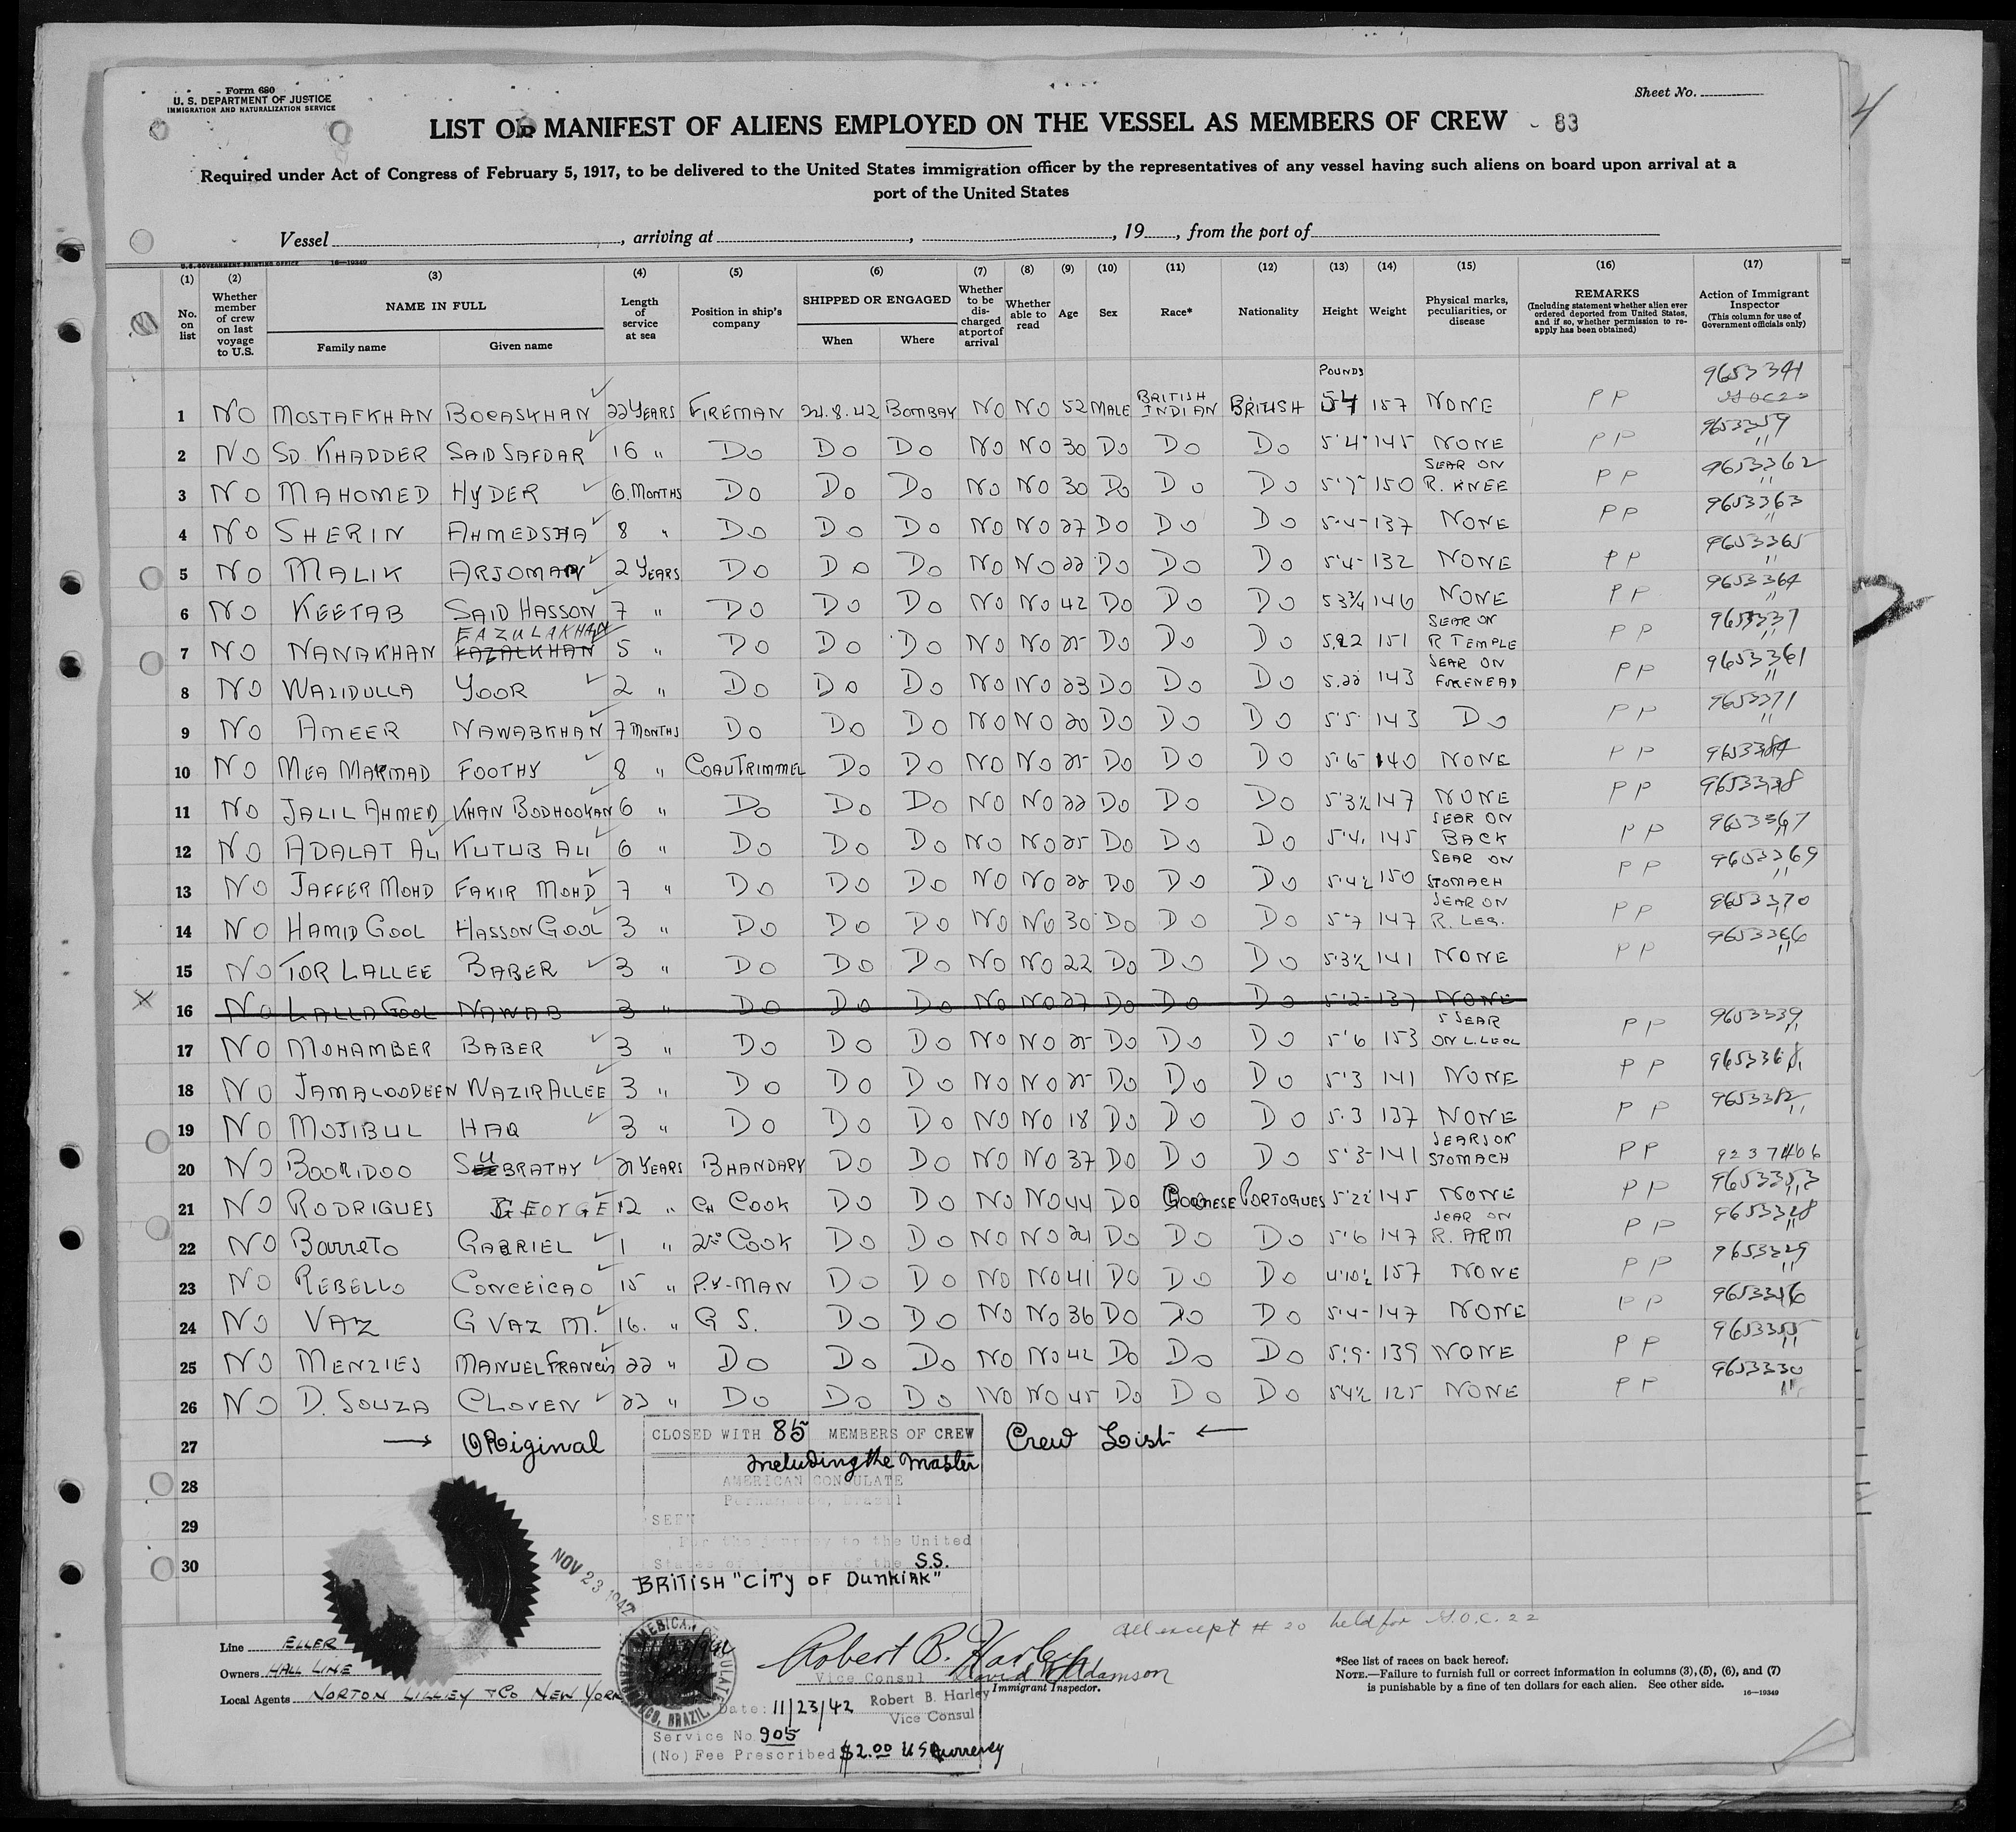 Form 680
U. S. DEPARTMENT OF JUSTICE
IMMIGRATION AND NATURALIZATION SERVICE
Sheet No.
4
LIST OR MANIFEST OF ALIENS EMPLOYED ON THE VESSEL AS MEMBERS OF CREW - 83
Required under Act of Congress of February 5, 1917, to be delivered to the United States immigration officer by the representatives of any vessel having such aliens on board upon arrival at a
port of the United States
Vessel , arriving at , , 19 , from the port of
U.S. GOVERNMENT PRINTING OFFICE 16—19349
(1) (2) (3) (4) (5) (6) (7) (8) (9) (10) (11) (12) (13) (14) (15) (16) (17)
No. on list
Whether member of crew on last voyage to U.S.
NAME IN FULL
Family name Given name
Length of service at sea
Position in ship's company
SHIPPED OR ENGAGED
When Where
Whether to be discharged at port of arrival
Whether able to read
Age
Sex
Race*
Nationality
Height
Weight
Physical marks, peculiarities, or disease
REMARKS
(Including statement whether alien ever ordered deported from United States, and if so, whether permission to reapply has been obtained)
Action of Immigrant Inspector
(This column for use of Government officials only)
POUNDS
1 NO MOSTAFKHAN BOCASKHAN 22 YEARS FIREMAN 24.8.42 BOMBAY NO NO 52 MALE BRITISH INDIAN BRITISH 5 4 157 NONE PP 9653341
2 NO SD. KHADDER SAID SAFDAR 16 " DO DO DO NO NO 30 DO DO DO 5'4" 145 NONE PP 9653359
3 NO MAHOMED HYDER 6. MONTHS DO DO DO NO NO 30 DO DO DO 150 SEAR ON R. KNEE PP 9653362
4 NO SHERIN AHMEDSHA 8 " DO DO DO NO NO 27 DO DO DO 5.4- 137 NONE PP 9653363
5 NO MALIK ARJOMAN 2 YEARS DO DO DO NO NO 22 DO DO DO 5'4- 132 NONE PP 9653365
6 NO KEETAB SAID HASSON 7 " DO DO DO NO NO 42 DO DO DO 5 3¾ 146 NONE PP 9653364
7 NO NANAKHAN FAZULAKHAN FAZALKHAN 5 " DO DO DO NO NO 25 DO DO DO 5.22 151 SEAR ON R TEMPLE PP
8 NO WAZIDULLA YOOR 2 " DO DO DO NO NO 23 DO DO DO 5.22 143 SEAR ON FOREHEAD PP 9653361
9 NO AMEER NAWABKHAN 7 MONTHS DO DO DO NO NO 20 DO DO DO 5'5 143 DO PP 9653371
10 NO MEA MARMAD FOOTHY 8 " COAUTRIMMEL DO DO NO NO 25 DO DO DO 5.6- 140 NONE PP
11 NO JALIL AHMED KHAN BODHOOKAN 6 " DO DO DO NO NO 22 DO DO DO 5'3½ 147 NONE PP
12 NO ADALAT ALI KUTUB ALI 6 " DO DO DO NO NO 25 DO DO DO 5'4. 145 SEAR ON BACK PP 9653367
13 NO JAFFER MOHD FAKIR MOHD 7 " DO DO DO NO NO 22 DO DO DO 5'4½ 150 SEAR ON STOMACH PP 9653369
14 NO HAMID GOOL HASSON GOOL 3 " DO DO DO NO NO 30 DO DO DO 5'7 147 SEAR ON R. LEG. PP 9653370
15 NO TOR LALLEE BABER 3 " DO DO DO NO NO 22 DO DO DO 5'3½ 141 NONE PP 9653366
X 16 NO LALLA GOOL NAWAB 3 " DO DO DO NO NO 27 DO DO DO 5'2- 137 NONE
17 NO MOHAMBER BABER 3 " DO DO DO NO NO 25 DO DO DO 5'6 153 SEAR ON L. LEG PP 9653339
18 NO JAMALOODEEN WAZIRALLEE 3 " DO DO DO NO NO 25 DO DO DO 5'3 141 NONE PP 9653368
19 NO MOJIBUL HAQ 3 " DO DO DO NO NO 18 DO DO DO 5.3 137 NONE PP 9653382
20 NO BOORIDOO SUBRATHY 21 YEARS BHANDARY DO DO NO NO 37 DO DO DO 5'3- 141 SEARS ON STOMACH PP 9237406
21 NO RODRIGUES GEORGE 12 " CH COOK DO DO NO NO 44 DO GOANESE PORTOGUES 5'22 145 NONE PP
22 NO BARRETO GABRIEL 1 " 2ND COOK DO DO NO NO 21 DO DO DO 5'6 147 SEAR ON R. ARM PP
23 NO REBELLO CONCEICAO 15 " P.Y-MAN DO DO NO NO 41 DO DO DO 4'10½ 157 NONE PP 9653329
24 NO VAZ G VAZ M. 16. " G S. DO DO NO NO 36 DO DO DO 5'4- 147 NONE PP
25 NO MENZIES MANUEL FRANCIS 22 " DO DO DO NO NO 42 DO DO DO 5'9. 139 NONE PP 9653355
26 NO D. SOUZA CLOVEN 23 " DO DO DO NO NO 45 DO DO DO 5'4½ 125 NONE PP 9653330
27 → ORiginal CLOSED WITH 85 MEMBERS OF CREW Crew List ←
including the Master
28 AMERICAN CONSULATE
Pernambuco, Brasil
29 SEEN
For the journey to the United
30 States of the S.S.
BRITISH "CITY OF DUNKIRK"
NOV 23 1942
all except # 20 held for G.O.C. 22
Line ELLER
Owners HALL LINE
Local Agents NORTON LILLEY & CO NEW YORK
Robert B. Harley
Vice Consul
David W Adamson
Immigrant Inspector.
Date: 11/23/42 Robert B. Harley
Vice Consul
Service No. 905
(No) Fee Prescribed $2.00 US Currency
*See list of races on back hereof.
NOTE.—Failure to furnish full or correct information in columns (3), (5), (6), and (7)
is punishable by a fine of ten dollars for each alien. See other side. 16—19349